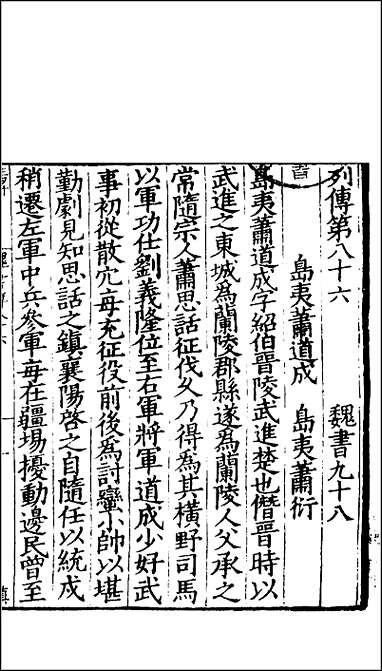 列傳第八十六　魏書九十八
島夷蕭道成　島夷蕭衍
島夷蕭道成字紹伯晉陵武進楚也僭晉時以
武進之東城為蘭陵郡縣遂為蘭陵人父承之
常隨宗人蕭思話征伐久乃得為其橫野司馬
以軍功仕劉義隆位至右軍將軍道成少好武
事初從散冗每充征役前後為討蠻小帥以堪
勤劇見知思話之鎮襄陽啓之自隨任以統戍
稍遷左軍中兵參軍每在疆埸擾動邊民曾至